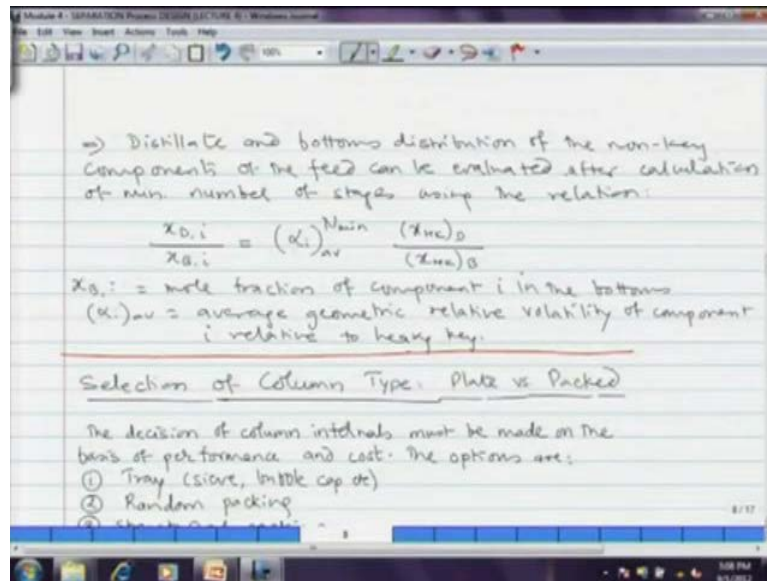 Module 4 - SEPARATION Process DESIGN (LECTURE 4) - Windows Journal
File Edit View Insert Actions Tools Help
100%
⇒ Distillate and bottoms distribution of the non-key
components of the feed can be evaluated after calculation
of min. number of stages using the relation:
x_D,i / x_B,i = (α_i)_av^Nmin (x_HK)_D / (x_HK)_B
x_B,i = mole fraction of component i in the bottoms
(α_i)_av = average geometric relative volatility of component
i relative to heavy key.
Selection of Column Type: Plate vs Packed
The decision of column internals must be made on the
basis of performance and cost. The options are:
① Tray (sieve, bubble cap etc)
② Random packing
8/17
3:08 PM